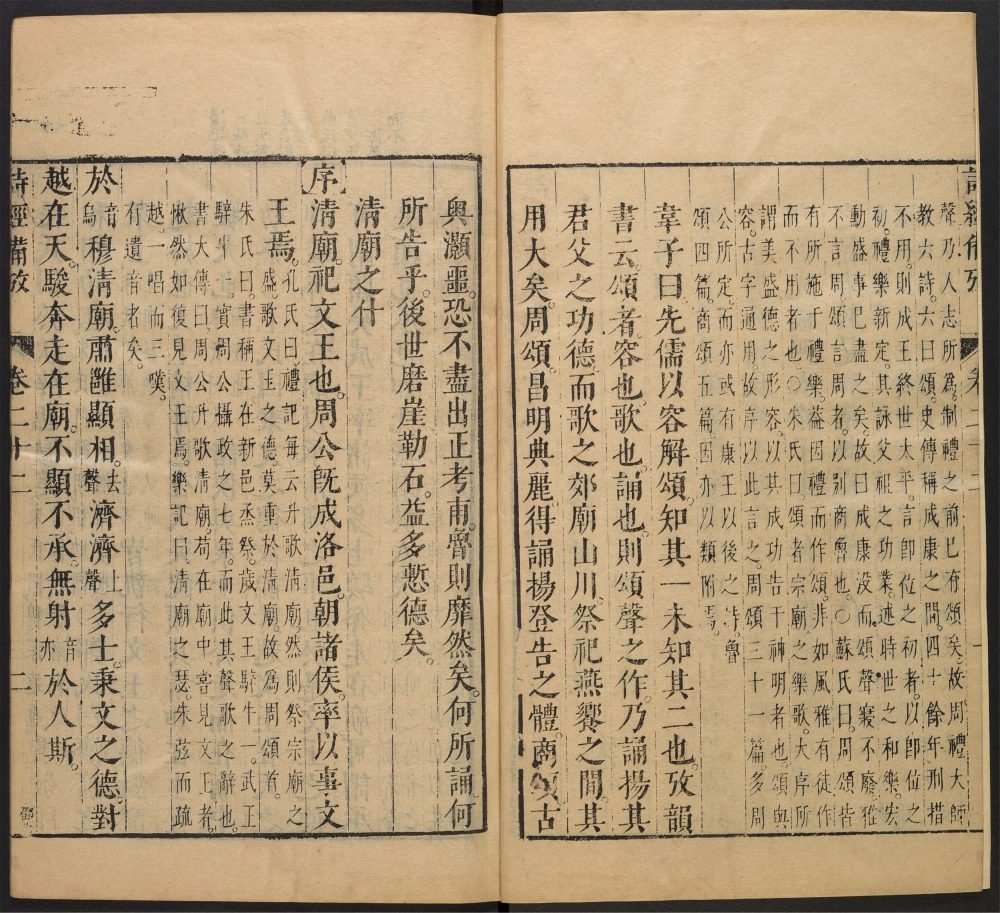 聲乃人志所爲制禮之前已有頌矣故周禮大師
教六詩六曰頌史傳稱成康之間四十餘年刑措
不用則成王終世太平言卽位之初者以卽位之
初禮樂新定其詠父祖之功業述時世之和樂宏
動盛事已盡之矣故曰成康没而頌聲寢不廢雅
不言周頌言周者以別商魯也○蘇氏曰周頌皆
有所施于禮樂蓋因禮而作頌非如風雅有徒作
而不用者也○朱氏曰頌者宗廟之樂歌大序所
謂美盛德之形容以其成功告于神明者也頌與
容古字通用故序以此言之周頌三十一篇多周
公所定而亦或有康王以後之詩魯
頌四篇商頌五篇因亦以類附焉
韋子曰先儒以容解頌知其一未知其二也攷韻
書云頌者容也歌也誦也則頌聲之作乃誦揚其
君父之功德而歌之郊廟山川祭祀燕饗之間其
用大矣周頌昌明典麗得誦揚登告之體商頌古
奧灝噩恐不盡出正考甫魯則靡然矣何所誦何
所告乎後世磨崖勒石益多慙德矣
清廟之什
序 清廟祀文王也周公旣成洛邑朝諸侯率以事文
王焉 孔氏曰禮記每云升歌清廟然則祭宗廟之
盛歌文王之德莫重於清廟故為周頌首
朱氏曰書稱王在新邑烝祭歳文王騂牛一武王
騂牛一實周公攝政之七年而此其聲歌之辭也
書大傳曰周公升歌清廟苟在廟中嘗見文王者
愀然如復見文王焉樂記曰清廟之瑟朱弦而疏
越一唱而三嘆
有遺音者矣
於 音烏 穆清廟肅雝顯相 去聲 濟濟 上聲 多士秉文之德對
越在天駿奔走在廟不顯不承無射 音亦 於人斯
詩經備攷 卷二十二 二